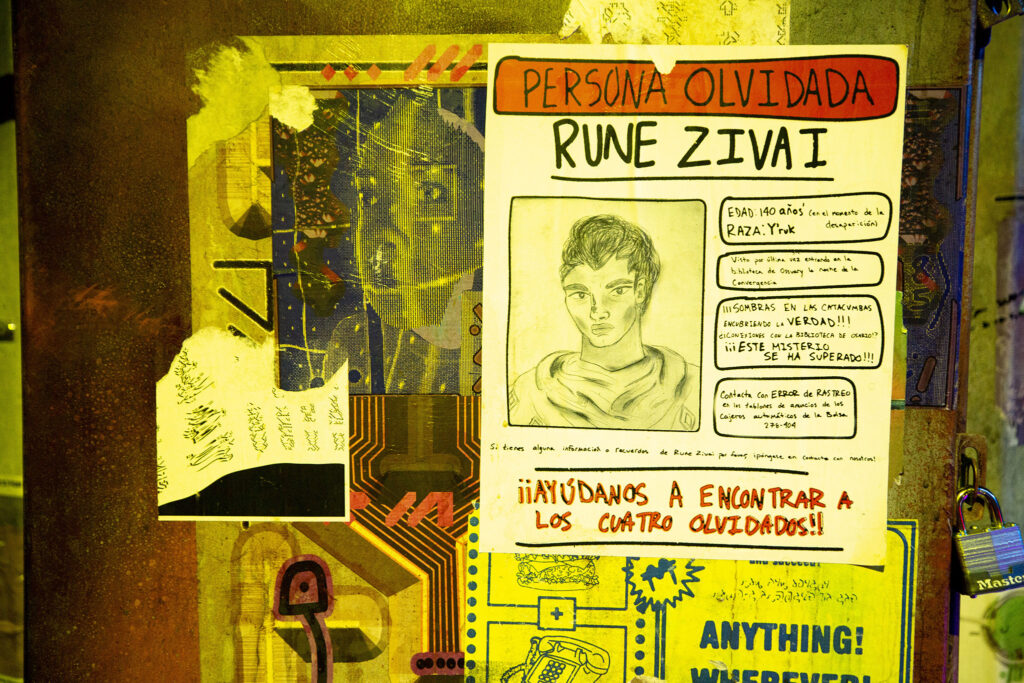 PERSONA OLVIDADA
RUNE ZIVAI
EDAD: 140 años (en el momento de la desaparición)
RAZA: Y'ruk
Visto por última vez entrando en la
biblioteca de Ossuary la noche de la
Convergencia
¡¡¡SOMBRAS EN LAS CATACUMBAS
ENCUBRIENDO LA VERDAD!!!
¿¡CONEXIONES CON LA BIBLIOTECA DE OSARIO!?
¡¡¡ESTE MISTERIO
SE HA SUPERADO!!!
Contacta con ERROR de RASTREO
en los tablones de anuncios de los
Cajeros automáticos de la Bolsa
278-404
Si tienes alguna información o recuerdos de Rune Zivai por favor, ¡póngase en contacto con nosotros!
¡¡AYÚDANOS A ENCONTRAR A
LOS CUATRO OLVIDADOS!!
ANYTHING!
WHEREVER!
Master